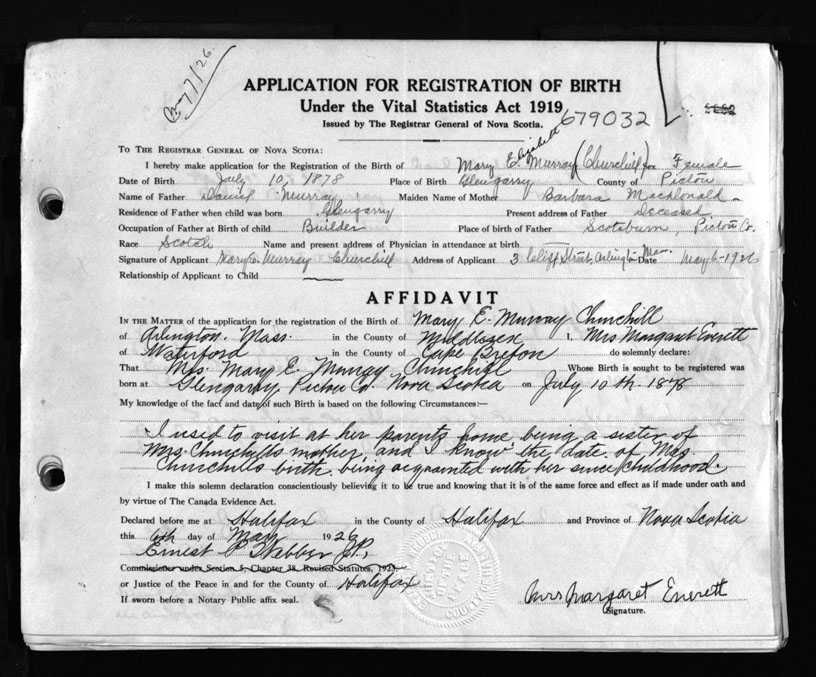 May 7/26
APPLICATION FOR REGISTRATION OF BIRTH
Under the Vital Statistics Act 1919
Issued by The Registrar General of Nova Scotia.
679032
To The Registrar General of Nova Scotia:
Elizabeth
I hereby make application for the Registration of the Birth of Mary E. Murray (Churchill) Sex Female
Date of Birth July 10, 1878 Place of Birth Glengarry County of Pictou
Name of Father Daniel Murray Maiden Name of Mother Barbara Macdonald
Residence of Father when child was born Glengarry Present address of Father Deceased
Occupation of Father at Birth of child Builder Place of birth of Father Scotsburn, Pictou Co.
Race Scotch Name and present address of Physician in attendance at birth
Signature of Applicant Mary E. Murray Churchill Address of Applicant 3 Cliff Street, Arlington Mass. Date May 6-1926
Relationship of Applicant to Child
AFFIDAVIT
In the Matter of the application for the registration of the Birth of Mary E. Murray Churchill
of Arlington, Mass. in the County of Middlezex I, Mrs Margaret Everett
of Waterford in the County of Cape Breton do solemnly declare:
That Mrs. Mary E. Murray Churchill Whose Birth is sought to be registered was
born at Glengarry Pictou Co. Nova Scotia on July 10th. 1878
My knowledge of the fact and date of such Birth is based on the following Circumstances:—
I used to visit at her parents home, being a sister of
Mrs. Churchills mother, and I know the date of Mrs.
Churchills birth, being acquainted with her since childhood.
I make this solemn declaration conscientiously believing it to be true and knowing that it is of the same force and effect as if made under oath and
by virtue of The Canada Evidence Act.
Declared before me at Halifax in the County of Halifax and Province of Nova Scotia
this 6th day of May 1926
Ernest P. Webber J.P.
Commissioner under Section 5, Chapter 38, Revised Statutes, 1923
or Justice of the Peace in and for the County of Halifax
If sworn before a Notary Public affix seal.
Mrs Margaret Everett
Signature.